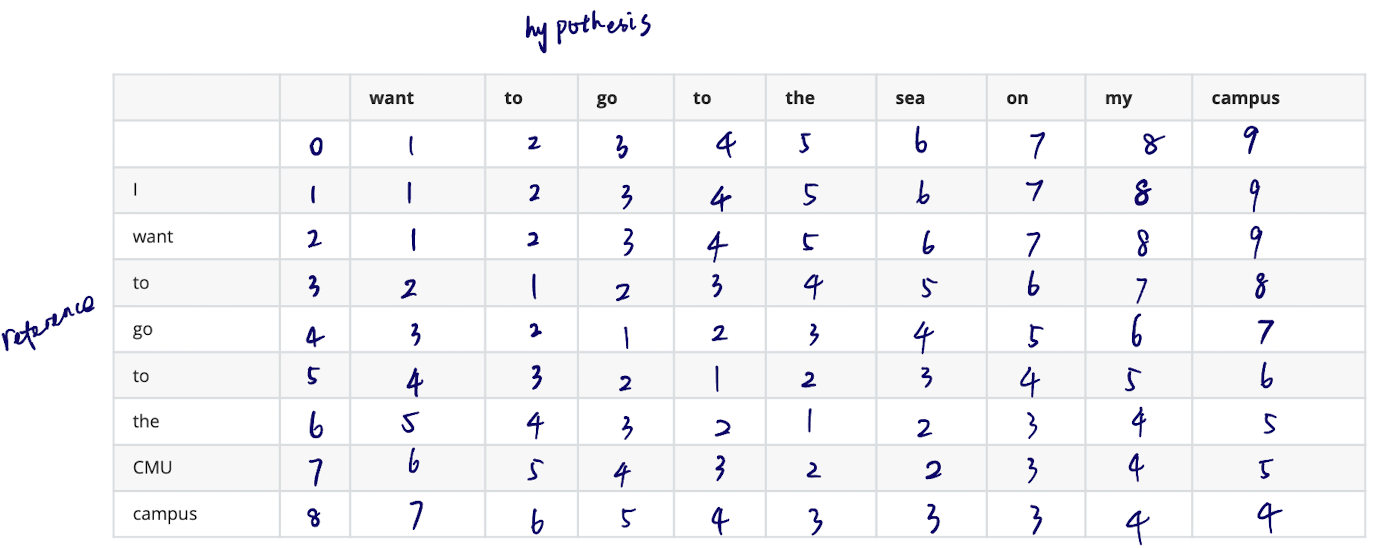 hypothesis
want to go to the sea on my campus
0 1 2 3 4 5 6 7 8 9
I 1 1 2 3 4 5 6 7 8 9
want 2 1 2 3 4 5 6 7 8 9
to 3 2 1 2 3 4 5 6 7 8
reference
go 4 3 2 1 2 3 4 5 6 7
to 5 4 3 2 1 2 3 4 5 6
the 6 5 4 3 2 1 2 3 4 5
CMU 7 6 5 4 3 2 2 3 4 5
campus 8 7 6 5 4 3 3 3 4 4